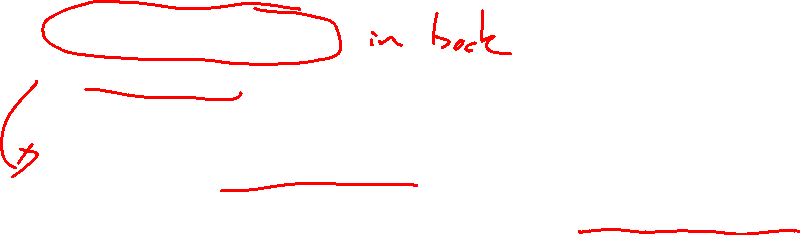 in back